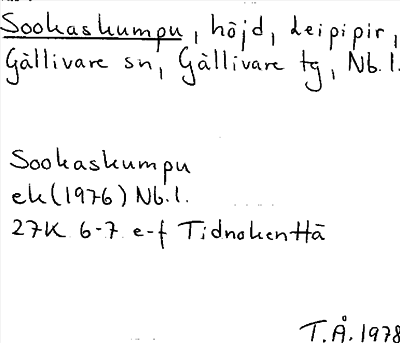 Sookaskumpu, höjd, Leipipir,
Gällivare sn, Gällivare tg, Nb.l.
Sookaskumpu
ek(1976) Nb.l.
27K 6-7 e-f Tidnokenttä
T.Å.1978